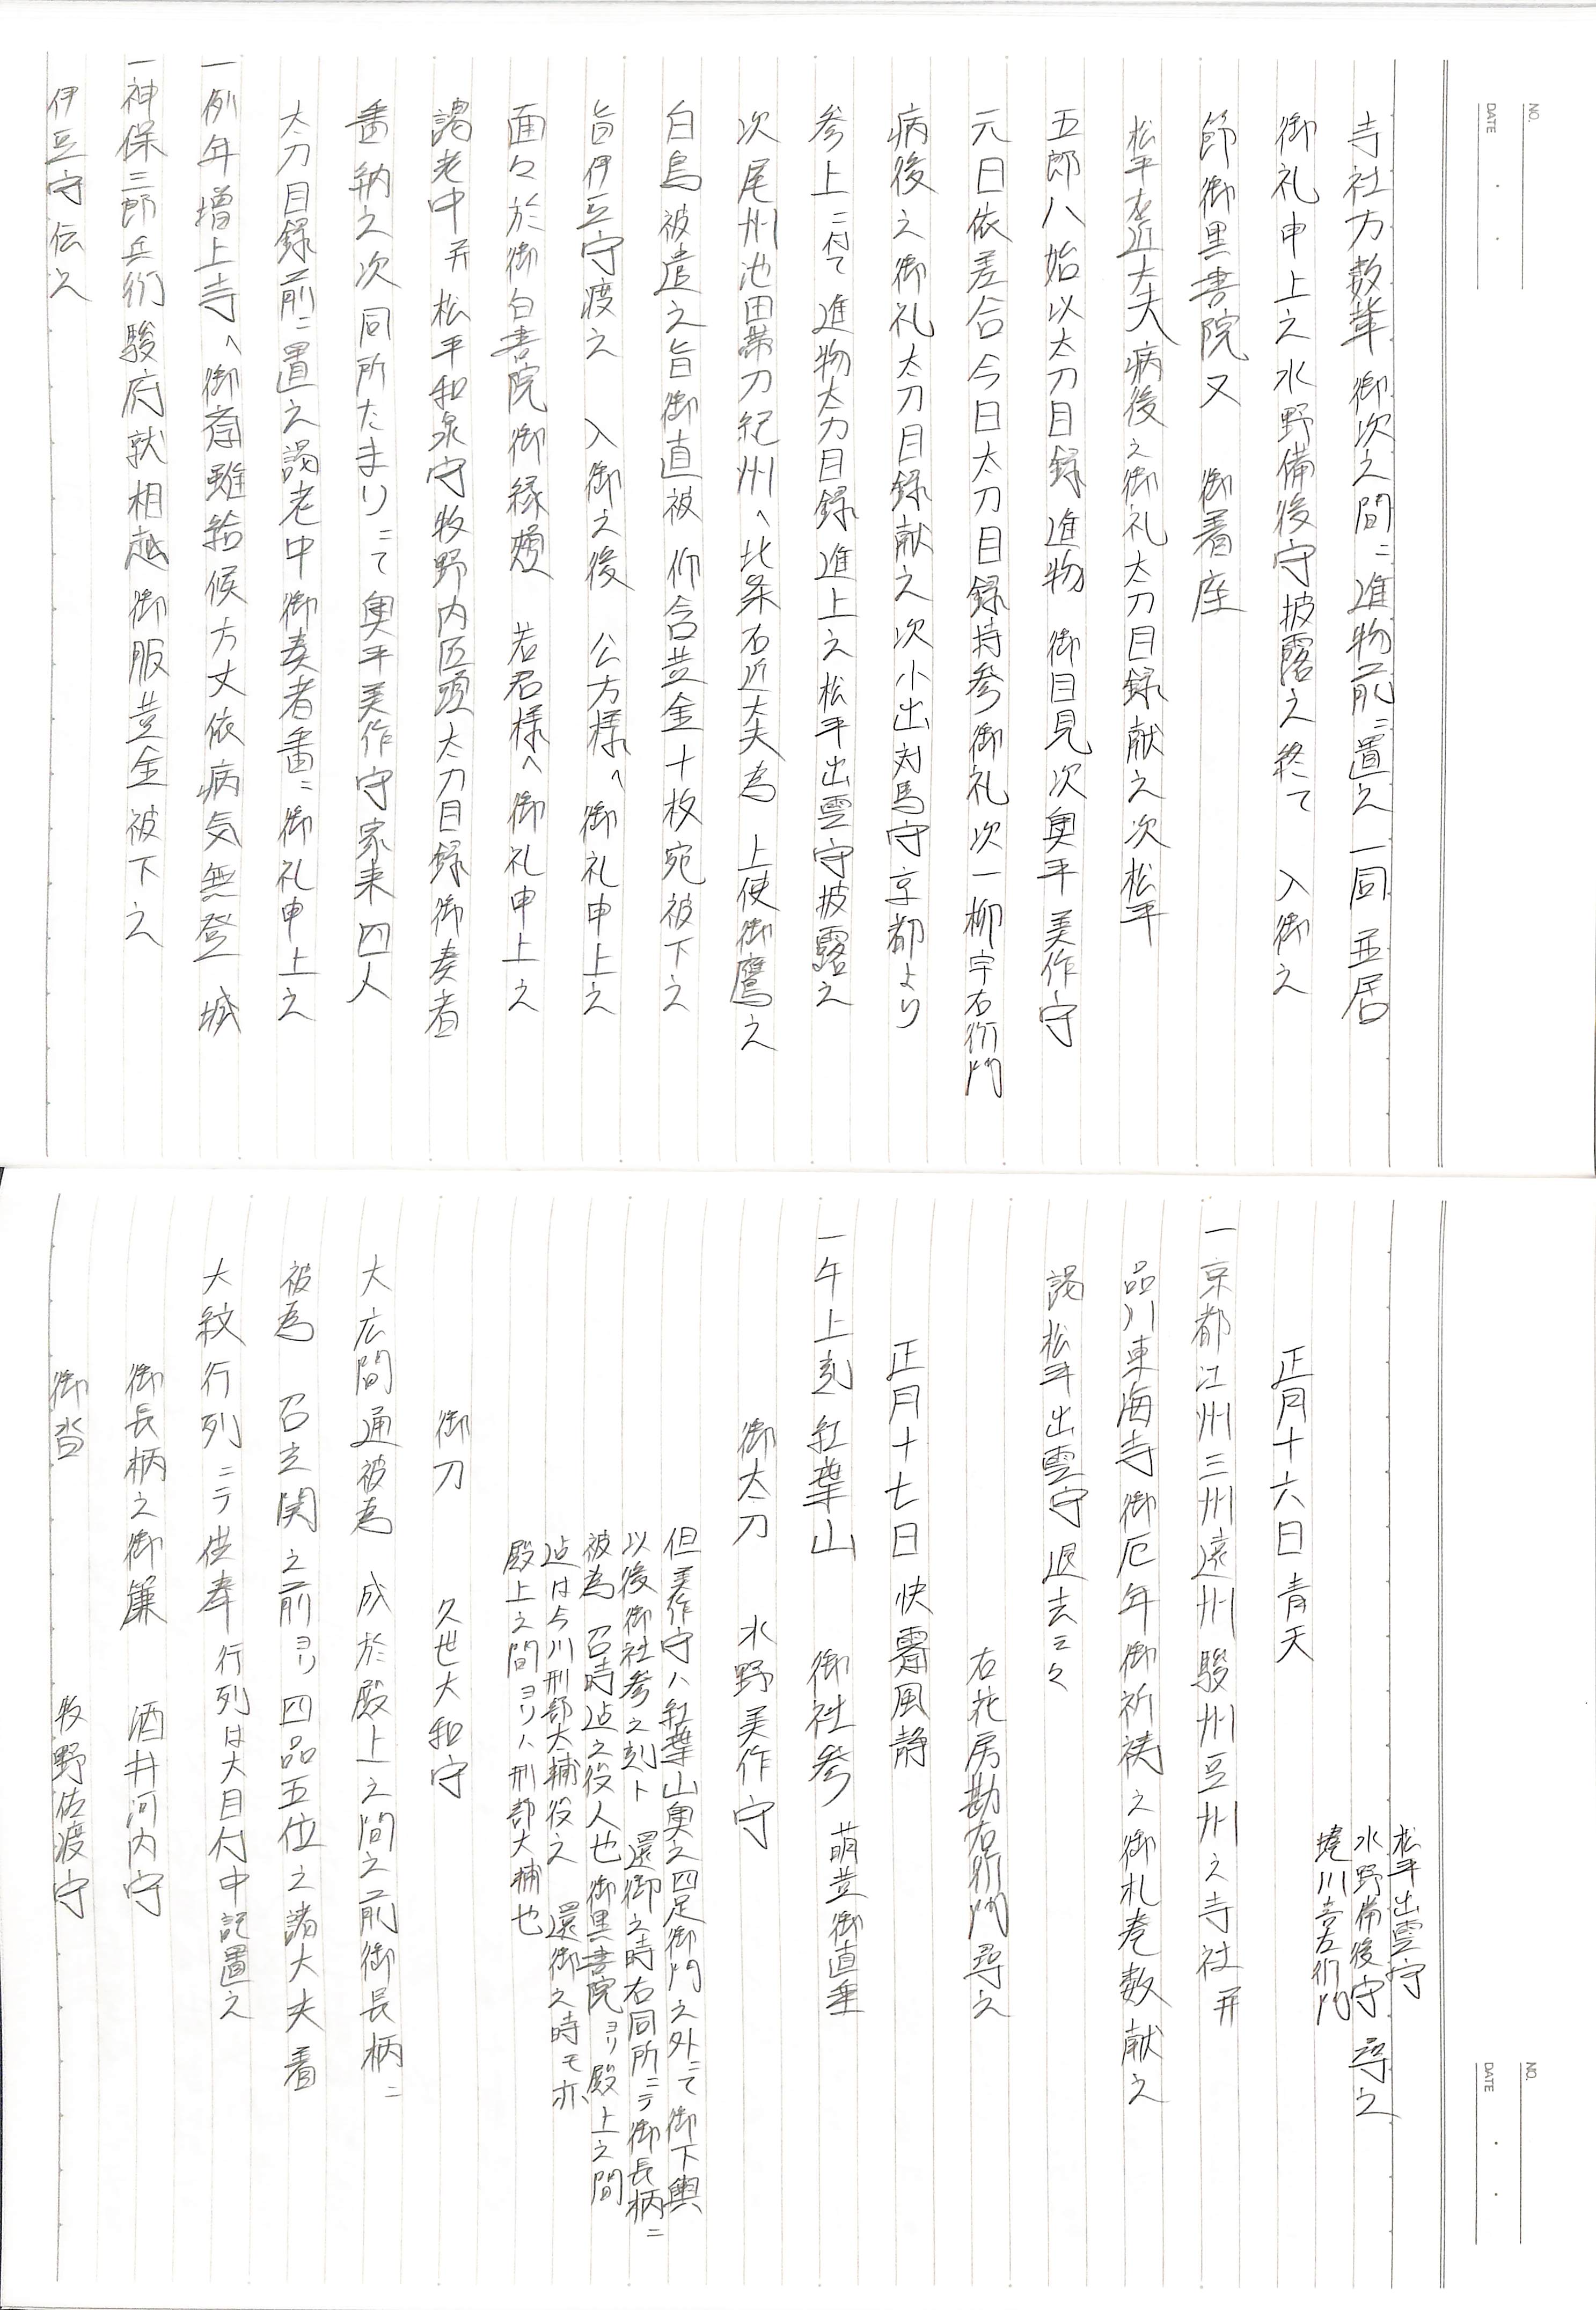 NO.
DATE
寺社方数輩 御次之間ニ進物前ニ置之 一同 並居
御礼申上之 水野備後守披露之 終て 入御之
節御黒書院又 御着座
松平右近大夫病後之御礼太刀目録献之 次松平
五郎八始以太刀目録進物 御目見 次奥平美作守
元日依差合今日太刀目録持参御礼 次一柳宇右衛門
病後之御礼太刀目録献之 次小出対馬守京都より
参上ニ付て 進物太刀目録進上之 松平出雲守披露之
次尾州池田帯刀紀州へ北条右近大夫為 上使御鷹之
白鳥被遣之旨御直被 仰含 並金十枚宛被下之
旨伊豆守渡之 入御之後 公方様へ御礼申上之
面々於御白書院御縁頬 若君様へ御礼申上之
謁老中并松平和泉守牧野内匠頭太刀目録御奏者
番納之 次同所たまりニて奥平美作守家来四人
太刀目録前ニ置之謁老中御奏者番ニ御礼申上之
一例年増上寺へ御斎雖給候方丈依病気無登 城
一神保三郎兵衛駿府就相越御服並金被下之
伊豆守伝之
NO.
DATE
松平出雲守
水野備後守 尋之
蜷川喜左衛門
正月十六日 青天
一京都江州三州遠州駿州豆州之寺社并
品川東海寺御厄年御祈祷之御札巻数献之
謁松平出雲守退去云々
右花房勘右衛門尋之
正月十七日 快霽風静
一午上刻 紅葉山 御社参 萌黄御直垂
御太刀 水野美作守
但美作守ハ紅葉山奥之四足御門之外ニて御下輿
以後御社参之刻ト 還御之時右同所ニテ御長柄ニ
被為 召時迠之役人也御黒書院ヨリ殿上之間
迠は今川刑部大輔役之 還御之時モ亦
殿上之間ヨリハ刑部大輔也
御刀 久世大和守
大広間通被為 成於殿上之間之前御長柄ニ
被為 召玄関之前ヨリ四品五位之諸大夫着
大紋行列ニテ供奉 行列は大目付中記置之
御長柄之御簾 酒井河内守
御沓 牧野佐渡守